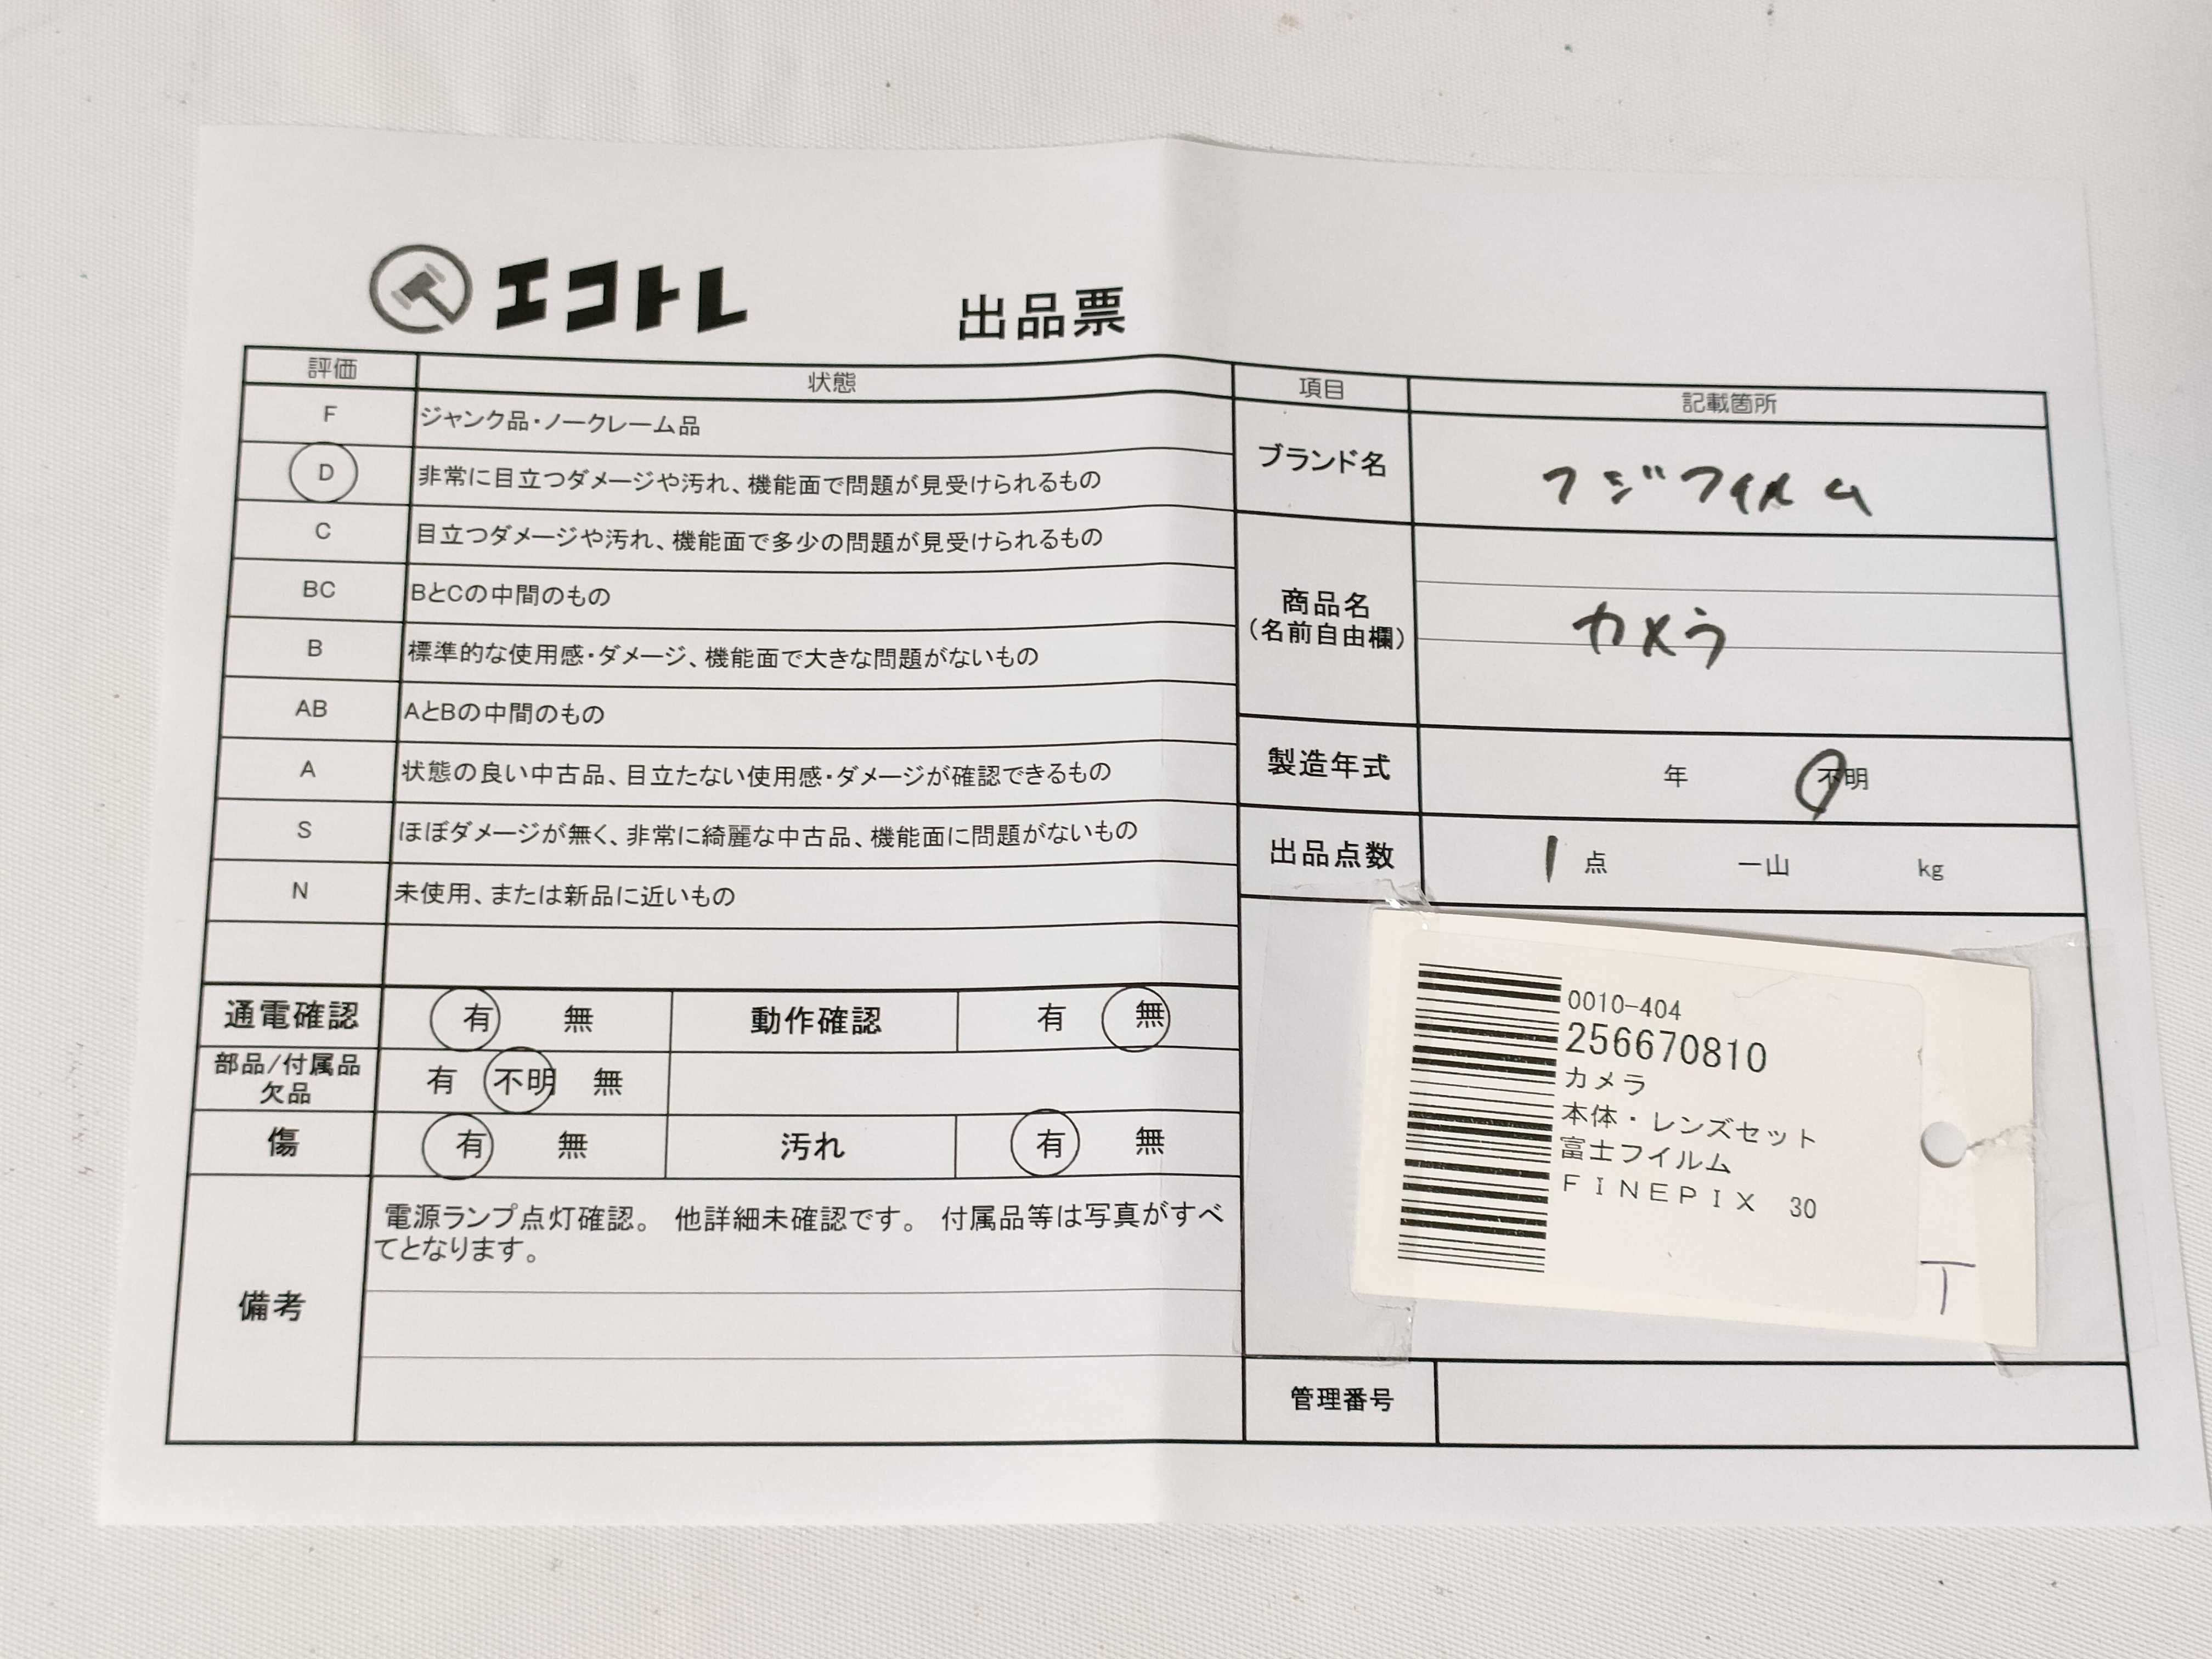 エコトレ
出品票
評価 状態
F ジャンク品・ノークレーム品
D 非常に目立つダメージや汚れ、機能面で問題が見受けられるもの
C 目立つダメージや汚れ、機能面で多少の問題が見受けられるもの
BC BとCの中間のもの
B 標準的な使用感・ダメージ、機能面で大きな問題がないもの
AB AとBの中間のもの
A 状態の良い中古品、目立たない使用感・ダメージが確認できるもの
S ほぼダメージが無く、非常に綺麗な中古品、機能面に問題がないもの
N 未使用、または新品に近いもの
通電確認 有 無 動作確認 有 無
部品/付属品
欠品
有 不明 無
傷 有 無 汚れ 有 無
備考
電源ランプ点灯確認。 他詳細未確認です。 付属品等は写真がすべ
てとなります。
項目 記載箇所
ブランド名 フジフイルム
商品名
(名前自由欄)
カメラ
製造年式 年 不明
出品点数 1 点 一山 kg
0010-404
256670810
カメラ
本体・レンズセット
富士フイルム
FINEPIX 30
T
管理番号